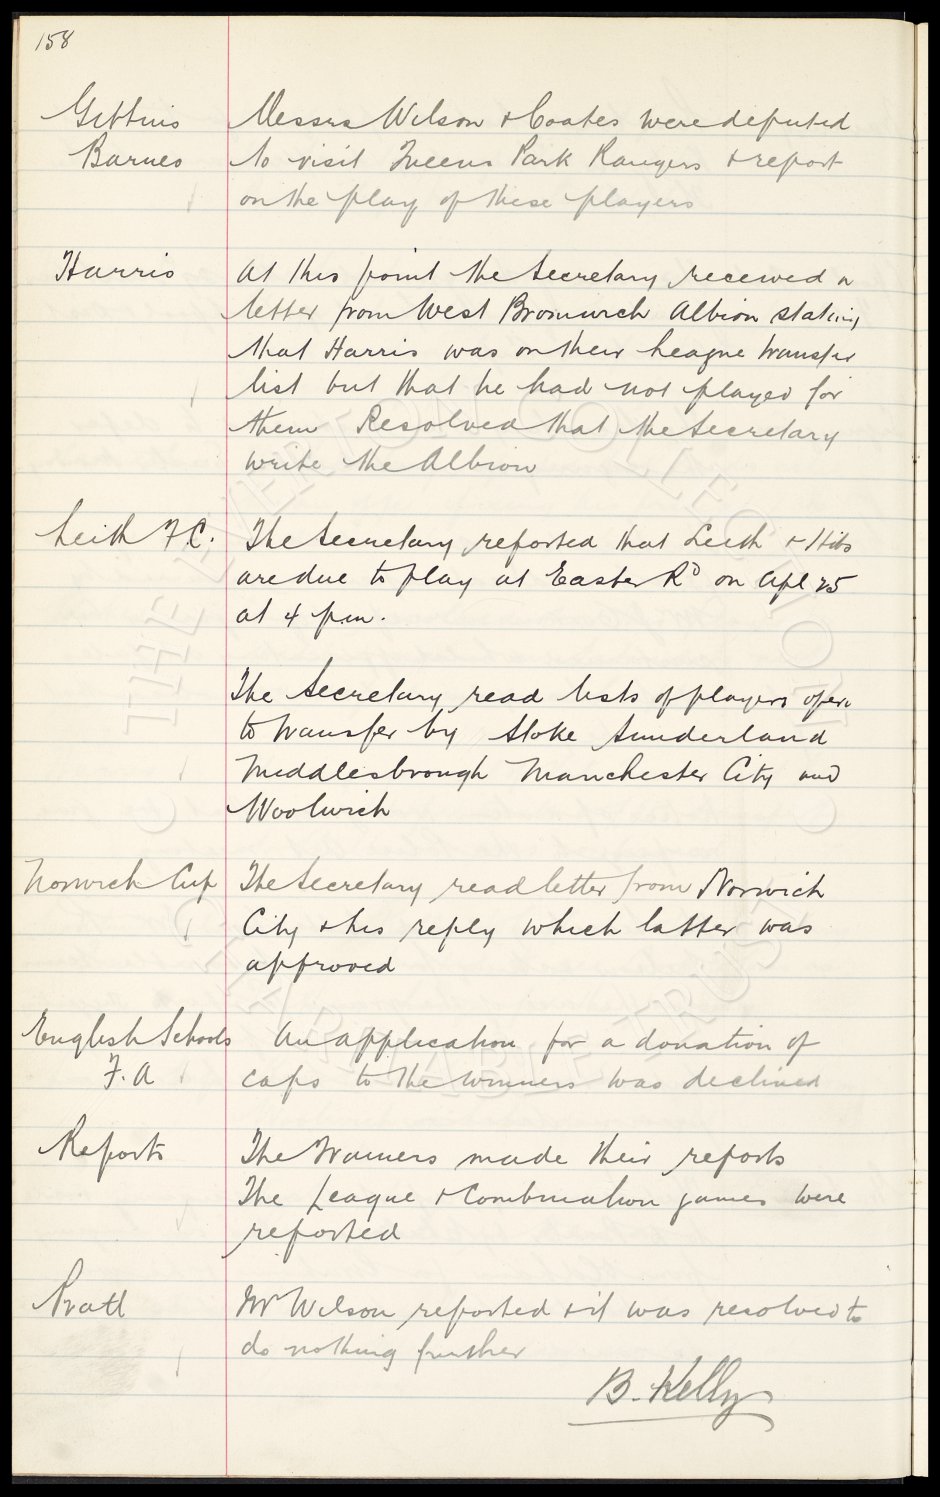 158
Gittins
Barnes
Messrs Wilson & Coates were deputed
to visit Queens Park Rangers & report
on the play of these players
Harris
At this point the Secretary received a
letter from West Bromwich Albion stating
that Harris was on their League transfer
list but that he had not played for
them Resolved that the Secretary
write the Albion
Leith F.C.
The Secretary reported that Leith & Hibs
are due to play at Easter Rd on Apl 25
at 4 p.m.
The Secretary read lists of players open
to transfer by Stoke Sunderland
Middlesbrough Manchester City and
Woolwich
Norwich Cup
The Secretary read letter from Norwich
City & his reply which latter was
approved
English Schools
F.A
An application for a donation of
caps to the winners was declined
Reports
The Trainers made their reports
The League & Combination games were
reported
Pratt
Mr Wilson reported & it was resolved to
do nothing further
B. Kelly
THE EVERTON COLLECTION
CHARITABLE TRUST